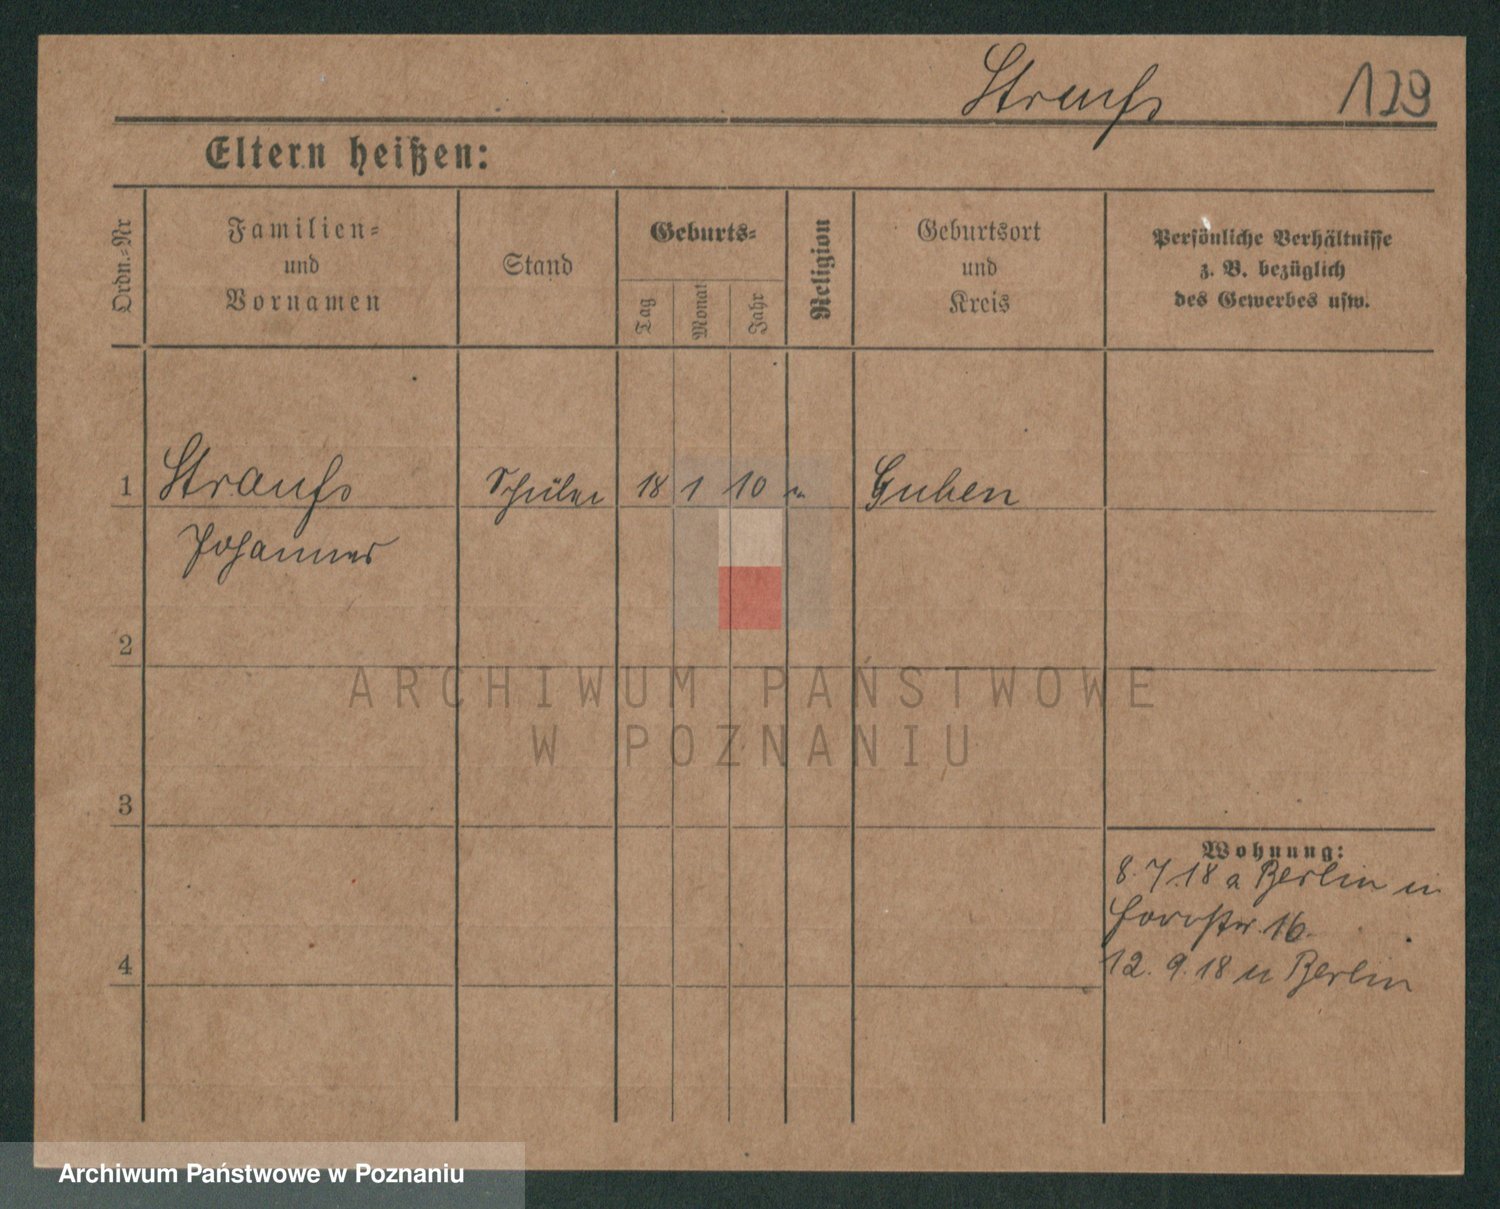 Strauß
129
Eltern heißen:
Ordn.-Nr
Familien-
und
Vornamen
Stand
Geburts-
Tag
Monat
Jahr
Religion
Geburtsort
und
Kreis
Persönliche Verhältnisse
z. B. bezüglich
des Gewerbes usw.
1 Strauß Schüler 18 1 10 Guben
Johannes
2
ARCHIWUM PAŃSTWOWE
W POZNANIU
3
Wohnung:
8.7.18 a Berlin in
16.
4
12.9.18 n Berlin
Archiwum Państwowe w Poznaniu